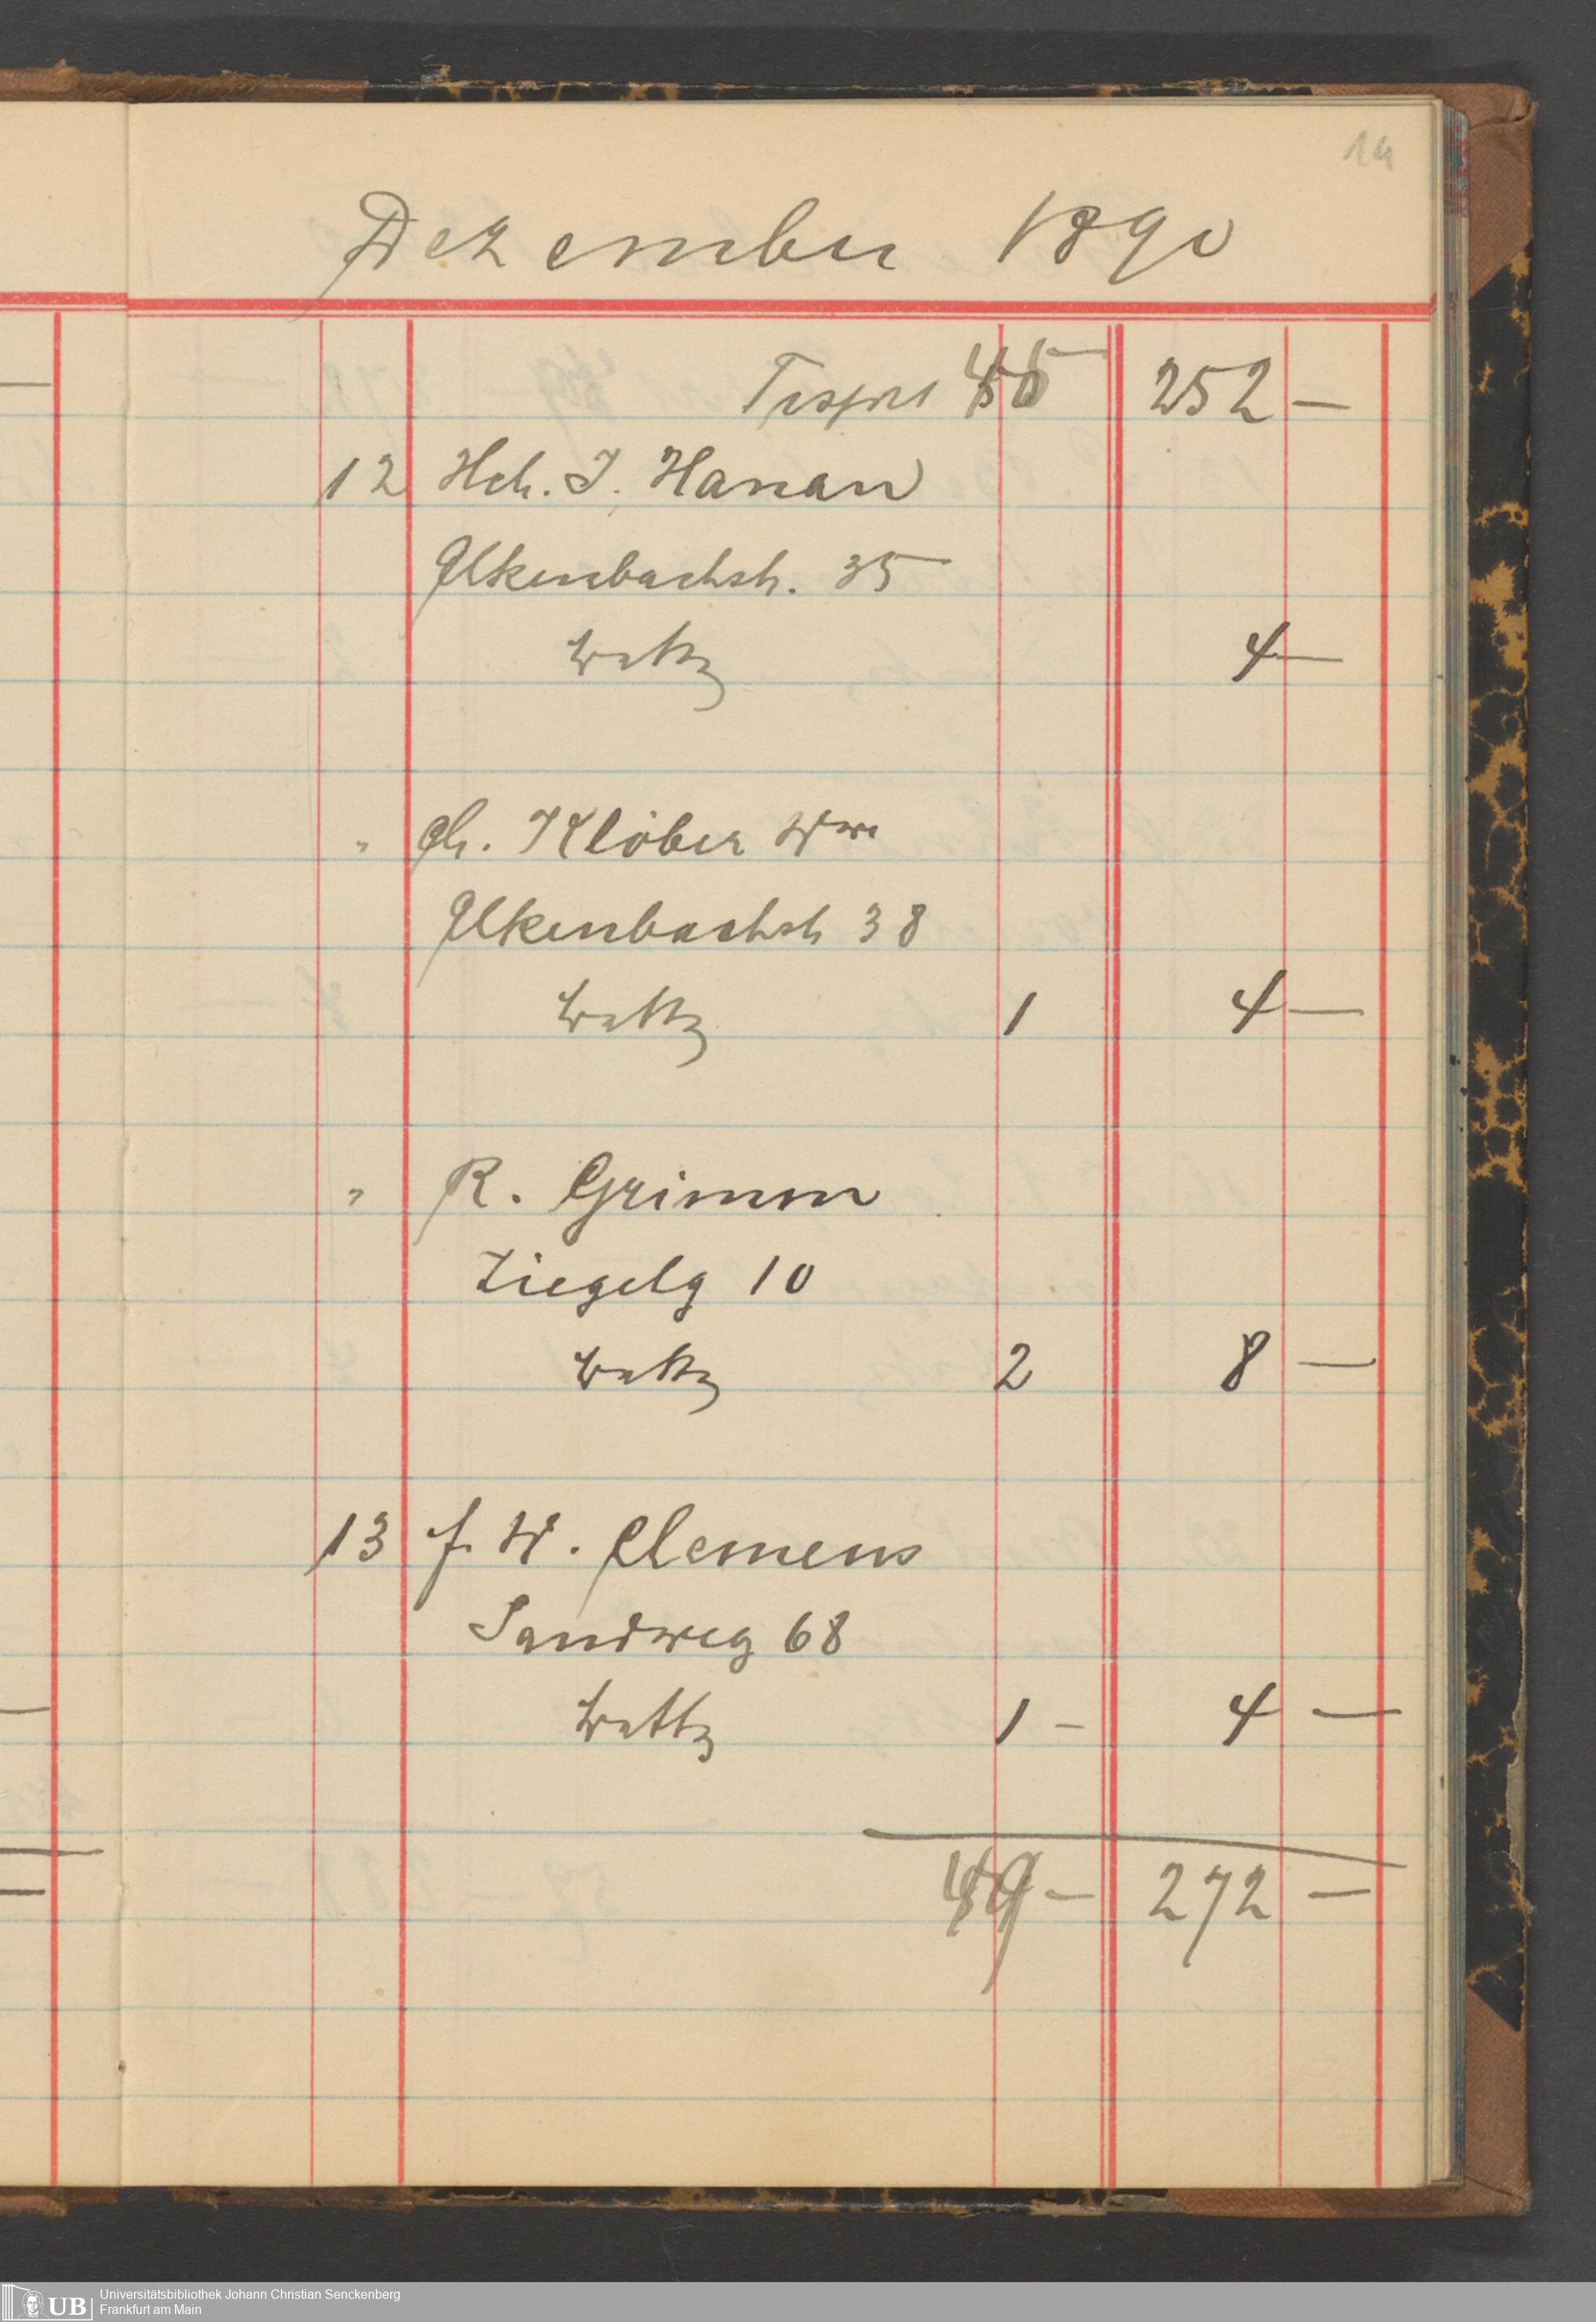 14
Dezember 1890
Trsprt 45 252 —
12 Hch. J. Hanau
Elkenbachstr. 35
4 —
" Ch. Klöber Wwe
Elkenbachstr 38
1 4 —
" R. Grimm
Ziegelg 10
2 8 —
13 J. W. Clemens
Sandweg 68
1 – 4 —
49 – 272 —
UB Universitätsbibliothek Johann Christian Senckenberg
Frankfurt am Main